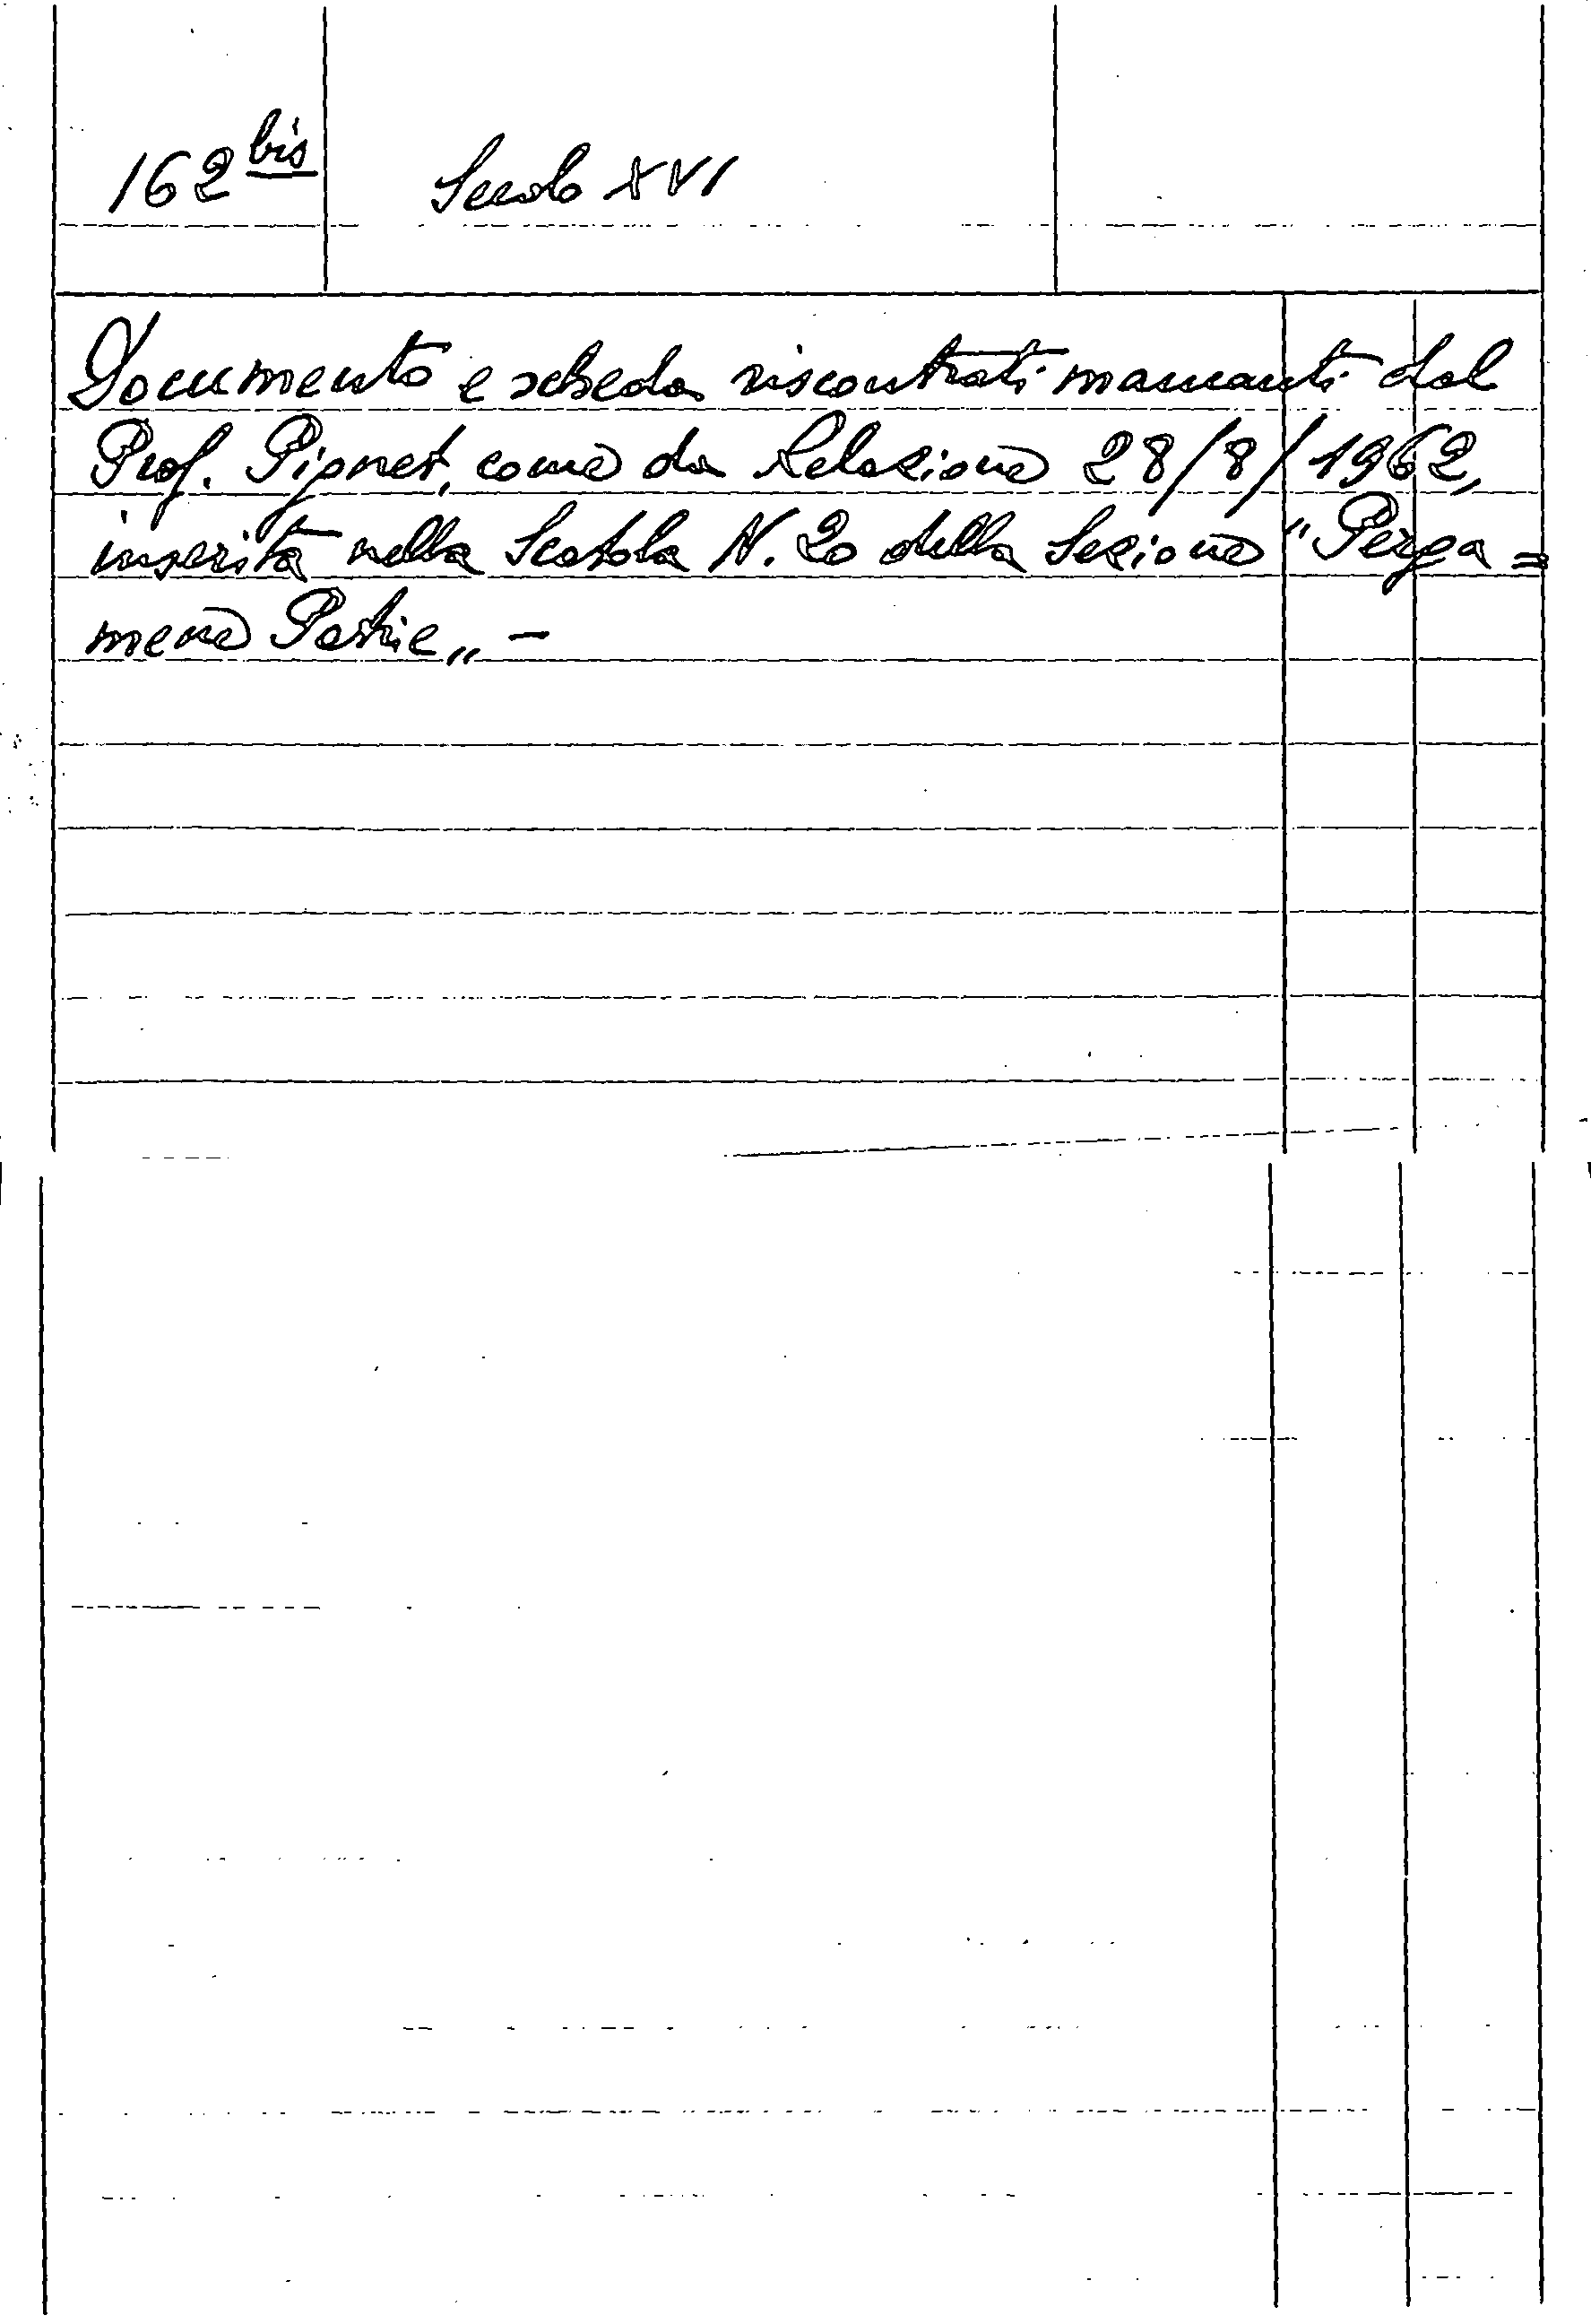 162 bis Secolo XVI
Documento e scheda riscontrati mancanti dal
Prof. Pignet, come da Relazione 28/8/1962,
inserita nella Scatola N. 20 della Sezione "Perga=
mene Patrie„ -